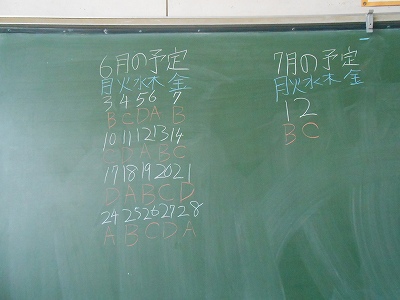 6月の予定
月火水木金
3 4 5 6 7
B C D A B
10 11 12 13 14
A B C
17 18 19 20 21
D A B C D
24 25 26 27 28
A B C D A
7月の予定
月火水木金
1 2
B C